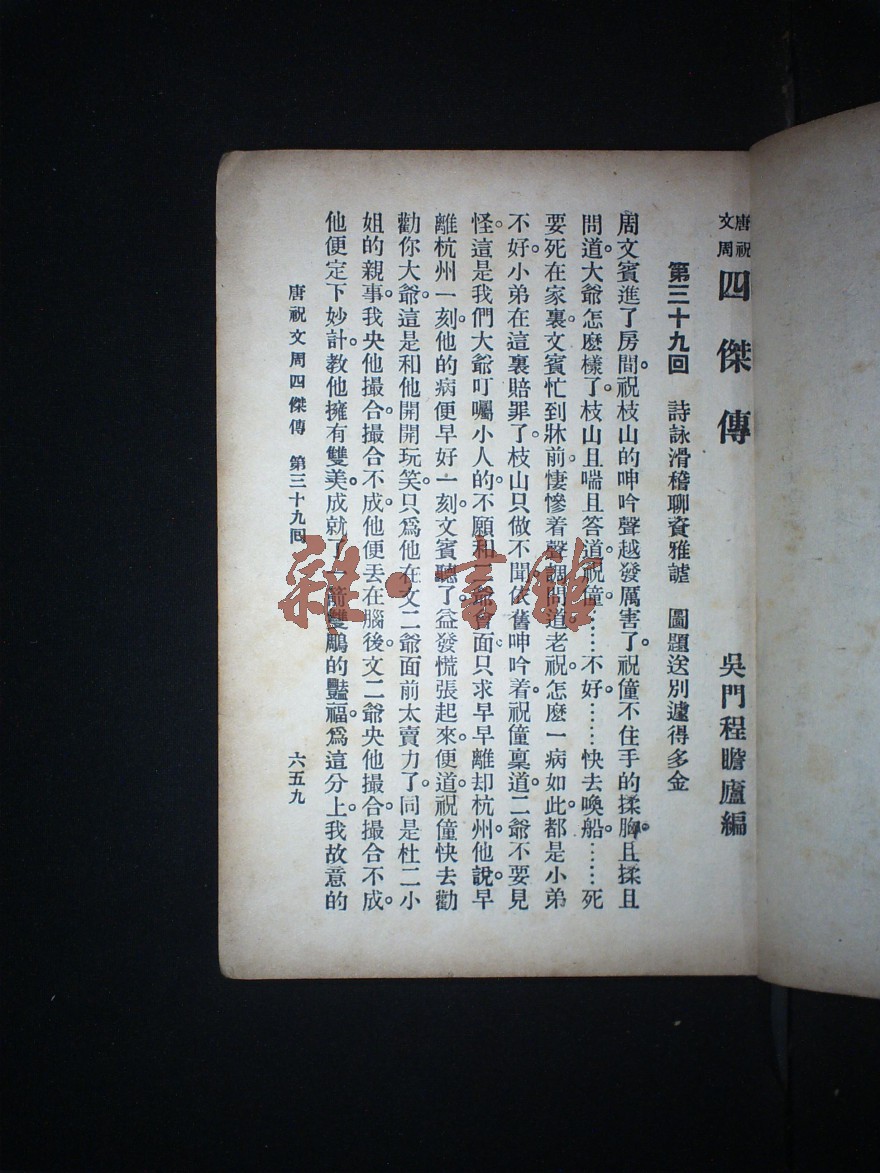 唐祝文周 四傑傳 吳門程瞻廬編
第三十九回 詩詠滑稽聊資雅謔 圖題送別遽得多金
周文賓進了房間。祝枝山的呻吟聲越發厲害了。祝僮不住手的揉胸。且揉且
問道。大爺怎麽樣了。枝山且喘且答道。祝僮……不好……快去喚船……死
要死在家裏。文賓忙到牀前。悽慘着聲調問道。老祝怎麽一病如此。都是小弟
不好。小弟在這裏賠罪了。枝山只做不聞。依舊呻吟着。祝僮稟道。二爺不要見
怪。這是我們大爺叮囑小人的。不願和二爺會面。只求早早離却杭州。他說早
離杭州一刻。他的病便早好一刻。文賓聽了。益發慌張起來。便道。祝僮快去勸
勸你大爺。這是和他開開玩笑。只爲他在文二爺面前太賣力了。同是杜二小
姐的親事。我央他撮合。撮合不成。他便丟在腦後。文二爺央他撮合。撮合不成。
他便定下妙計。教他擁有雙美。成就了一箭雙鵰的豔福。爲這分上。我故意的
唐祝文周四傑傳 第三十九回 六五九
雜·書館